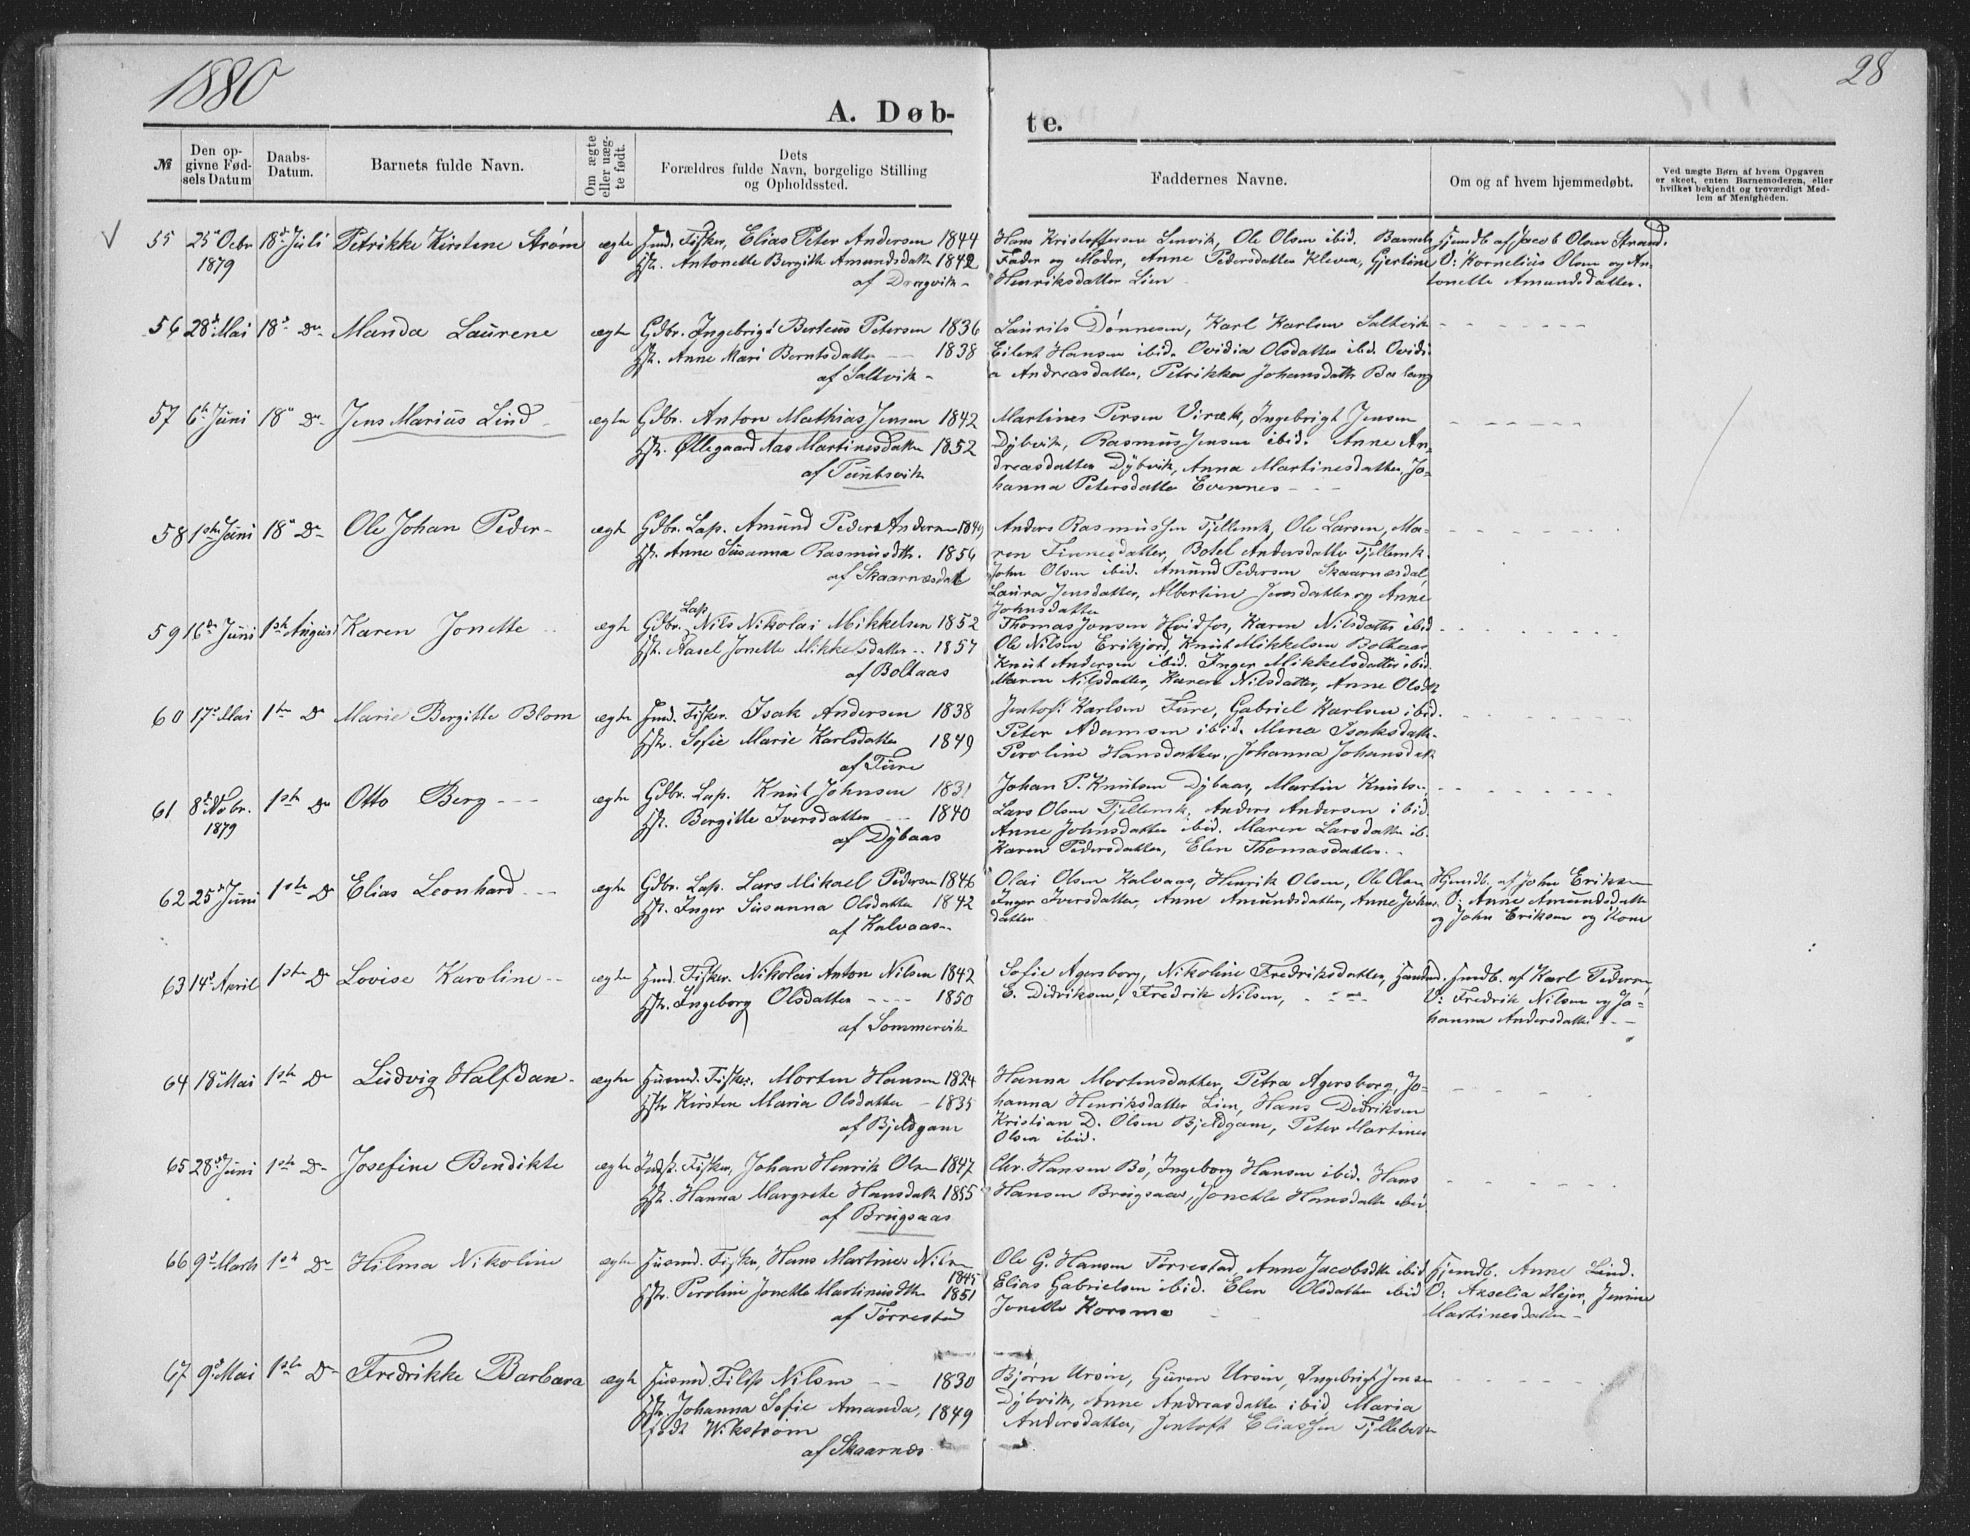 1880
28
A. Døb-
te.
№
Den op-
givne Fød-
sels Datum
Daabs-
Datum.
Barnets fulde Navn.
Om ægte
eller uæg-
te født.
Dets
Forældres fulde Navn, borgelige Stilling
og Opholdssted.
Faddernes Navne.
Om og af hvem hjemmedøbt.
Ved uægte Børn af hvem Opgaven
er skeet, enten Barnemoderen, eller
hvilket bekjendt og troværdigt Med-
lem af Menigheden.
55 25 Octbr 18d Juli Petrikke Kirstine Strøm ægte Fisker, Elias Peter Andersen 1844
1879 Hstr. Antonette Bergitte Amundsdatt 1842
af Dragvik
Hans Kristoffersen Lenvik, Ole Olsen ibid. Barnets
Fader og Moder, Anne Pedersdatter Kleven, Gjertine
Henriksdatter Lien
Hjemdb af Jacob Olsen Strand.
V: Kornelius Olsen og An-
tonette Amundsdatter.
56 28d Mai 18d Do Manda Laurene ægte Gdbr. Ingebrigt Berteus Petersen 1836
Hstr. Anne Mari Berntsdatter 1838
af Saltvik
Laurits Dønnesen, Karl Karlsen Saltvik
Eilert Hansen ibid. Ovidia Olsdatter ibid. Ovidi-
a Andreasdatter, Petrikka Johansdattr
57 6te Juni 18d Do Jens Marius Lind ægte Gdbr. Anton Mathias Jensen 1842
Hstr. Øllegaard Aas Martinesdatter 1852
af
Martines Persen Virak, Ingebrigt Jensen
Dybvik, Rasmus Jensen ibid. Anne An-
dreasdatter Dybvik, Anna Martinesdatter, Jo-
hanna Petersdatter Evennes
58 1ste Juni 18d Do Ole Johan Peder ægte Gdbr. Lap. Amund Peder Andersen
Hstr. Anne Susanna Rasmusdtr. 1856
af Skaarnæsdal
Anders Rasmussen Fjellemk, Ole Larsen, Ma-
ren Finnesdatter, Botel Andersdatter Fjellemk.
John Olsen ibid. Amund Pedersen Skaarnæsdal,
Laura Jensdatter, Albertine Jensdatter og Anne
Johnsdatter
59 16de Juni 1ste August Karen Jonette ægte Gdbr. Lap Nils Nikolai Mikkelsen 1852
Hstr. Aasel Jonette Mikkelsdatter 1857
af Boltaas
Thomas Jonsen Hvidfos, Karen Nilsdatter ibid
Ole Nilsen Erikjord, Knut Mikkelsen Boltaas
Knut Andersen ibid. Inger Mikkelsdatter ibid.
Maren Nilsdatter, Karen Nilsdatter, Anne Olsdt
60 17d Mai 1ste Do Marie Bergitte Blom ægte Fisker. Isak Andersen 1838
Hstr. Sofie Marie Karlsdatter 1849
af Fure
Jentoft Karlsen Fure, Gabriel Karlsen ibid.
Peter Adamsen ibid. Mina Isaksdatt.
Peroline Hansdatter, Johanna Johansdatt
61 8d Nobr. 1ste Do Otto Berg ægte Gdbr. Lap. Knut Johnsen 1831
1879 Hstr. Bergitte Iversdatter 1840
af Dybaas
Johan P. Knutsen Dybaas, Martin Knutsen,
Lars Olsen Fjellemk, Anders Andersen ibid
Anne Johnsdatter ibid. Maren Larsdatter ib.
Karen Pedersdatter, Elen Thomasdatter.
62 25d Juni 1ste Do Elias Leonhard ægte Gdbr. Lap. Lars Mikael Pedersen 1846
Hstr. Inger Susanna Olsdatter 1842
af Kalvaas
Olai Olsen Kalvaas, Henrik Olsen, Ole Olsen
Inger Iversdatter, Anne Amundsdatter, Anne Johns-
datter
Hjemdb. af John Eriksen
V: Anne Amundsdatter
og John Eriksen og Kone
63 14d April 1ste Do Lovise Karoline ægte Fisker. Nikolai Anton Nilsen 1842
Hstr. Ingeborg Olsdatter 1850
af Sommervik
Sofie Agersborg, Nikoline Fredriksdatter,
E. Didriksen, Fredrik Nilsen,
Hjemdb. af Karl Pedersen,
V: Fredrik Nilsen og Jo-
hanna Andersdatter
64 18d Mai 1ste Do Ludvig Halfdan ægte Husmd. Fisker. Morten Hansen 1824
Hstr Kirsten Maria Olsdatter 1835
af Bjeldgam
Hanna Mortensdatter, Petra Agersborg, Jo-
hanna Henriksdatter Lien, Hans Didriksen
Kristian D. Olsen Bjeldgam, Peter Martines
Olsen ibid.
65 28d Juni 1ste Do Josefine Bendikte ægte Indst. Fisker, Johan Henrik Olsen 1847
Hstr. Hanna Margrete Hansdatt 1855
af Brugsaas
Chr. Hansen Bø, Ingeborg Hansen ibid. Hans
Hansen Brugsaas, Jonette Hansdatter ibid
66 9d Marts 1ste Do Hilma Nikoline ægte Husmd. Fisker, Hans Martines Nilsen
1845
Hstr. Peroline Jonette Martinusdtr 1851
af Tørrestad
Ole G. Hansen Tørrestad, Anne Jacobsdtr ibid
Elias Gabrielsen ibid. Elen Olsdatter ibid
Jonette Korsmo
Hjemdb. Anne Lind.
V: Axselia Mejer, Jenine
Martinesdatter
67 9d Mai 1ste Do Fredrikke Barbara ægte Husmd. Filip Nilsen 1830
Hstr. Johanna Sofie Amanda, 1849
født Wikstrøm
af Skaarnæs
Bjørn Ursin, Guren Ursin, Ingebrigt Jensen
Dybvik, Anne Andreasdatter ibid, Maria
Andersdatter, Jentoft Eliassen